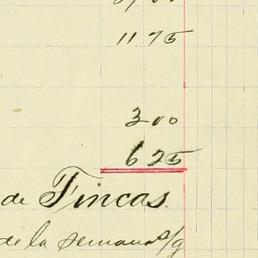 11 75
3 00
6 25
de Fincas.
de la semana s/g